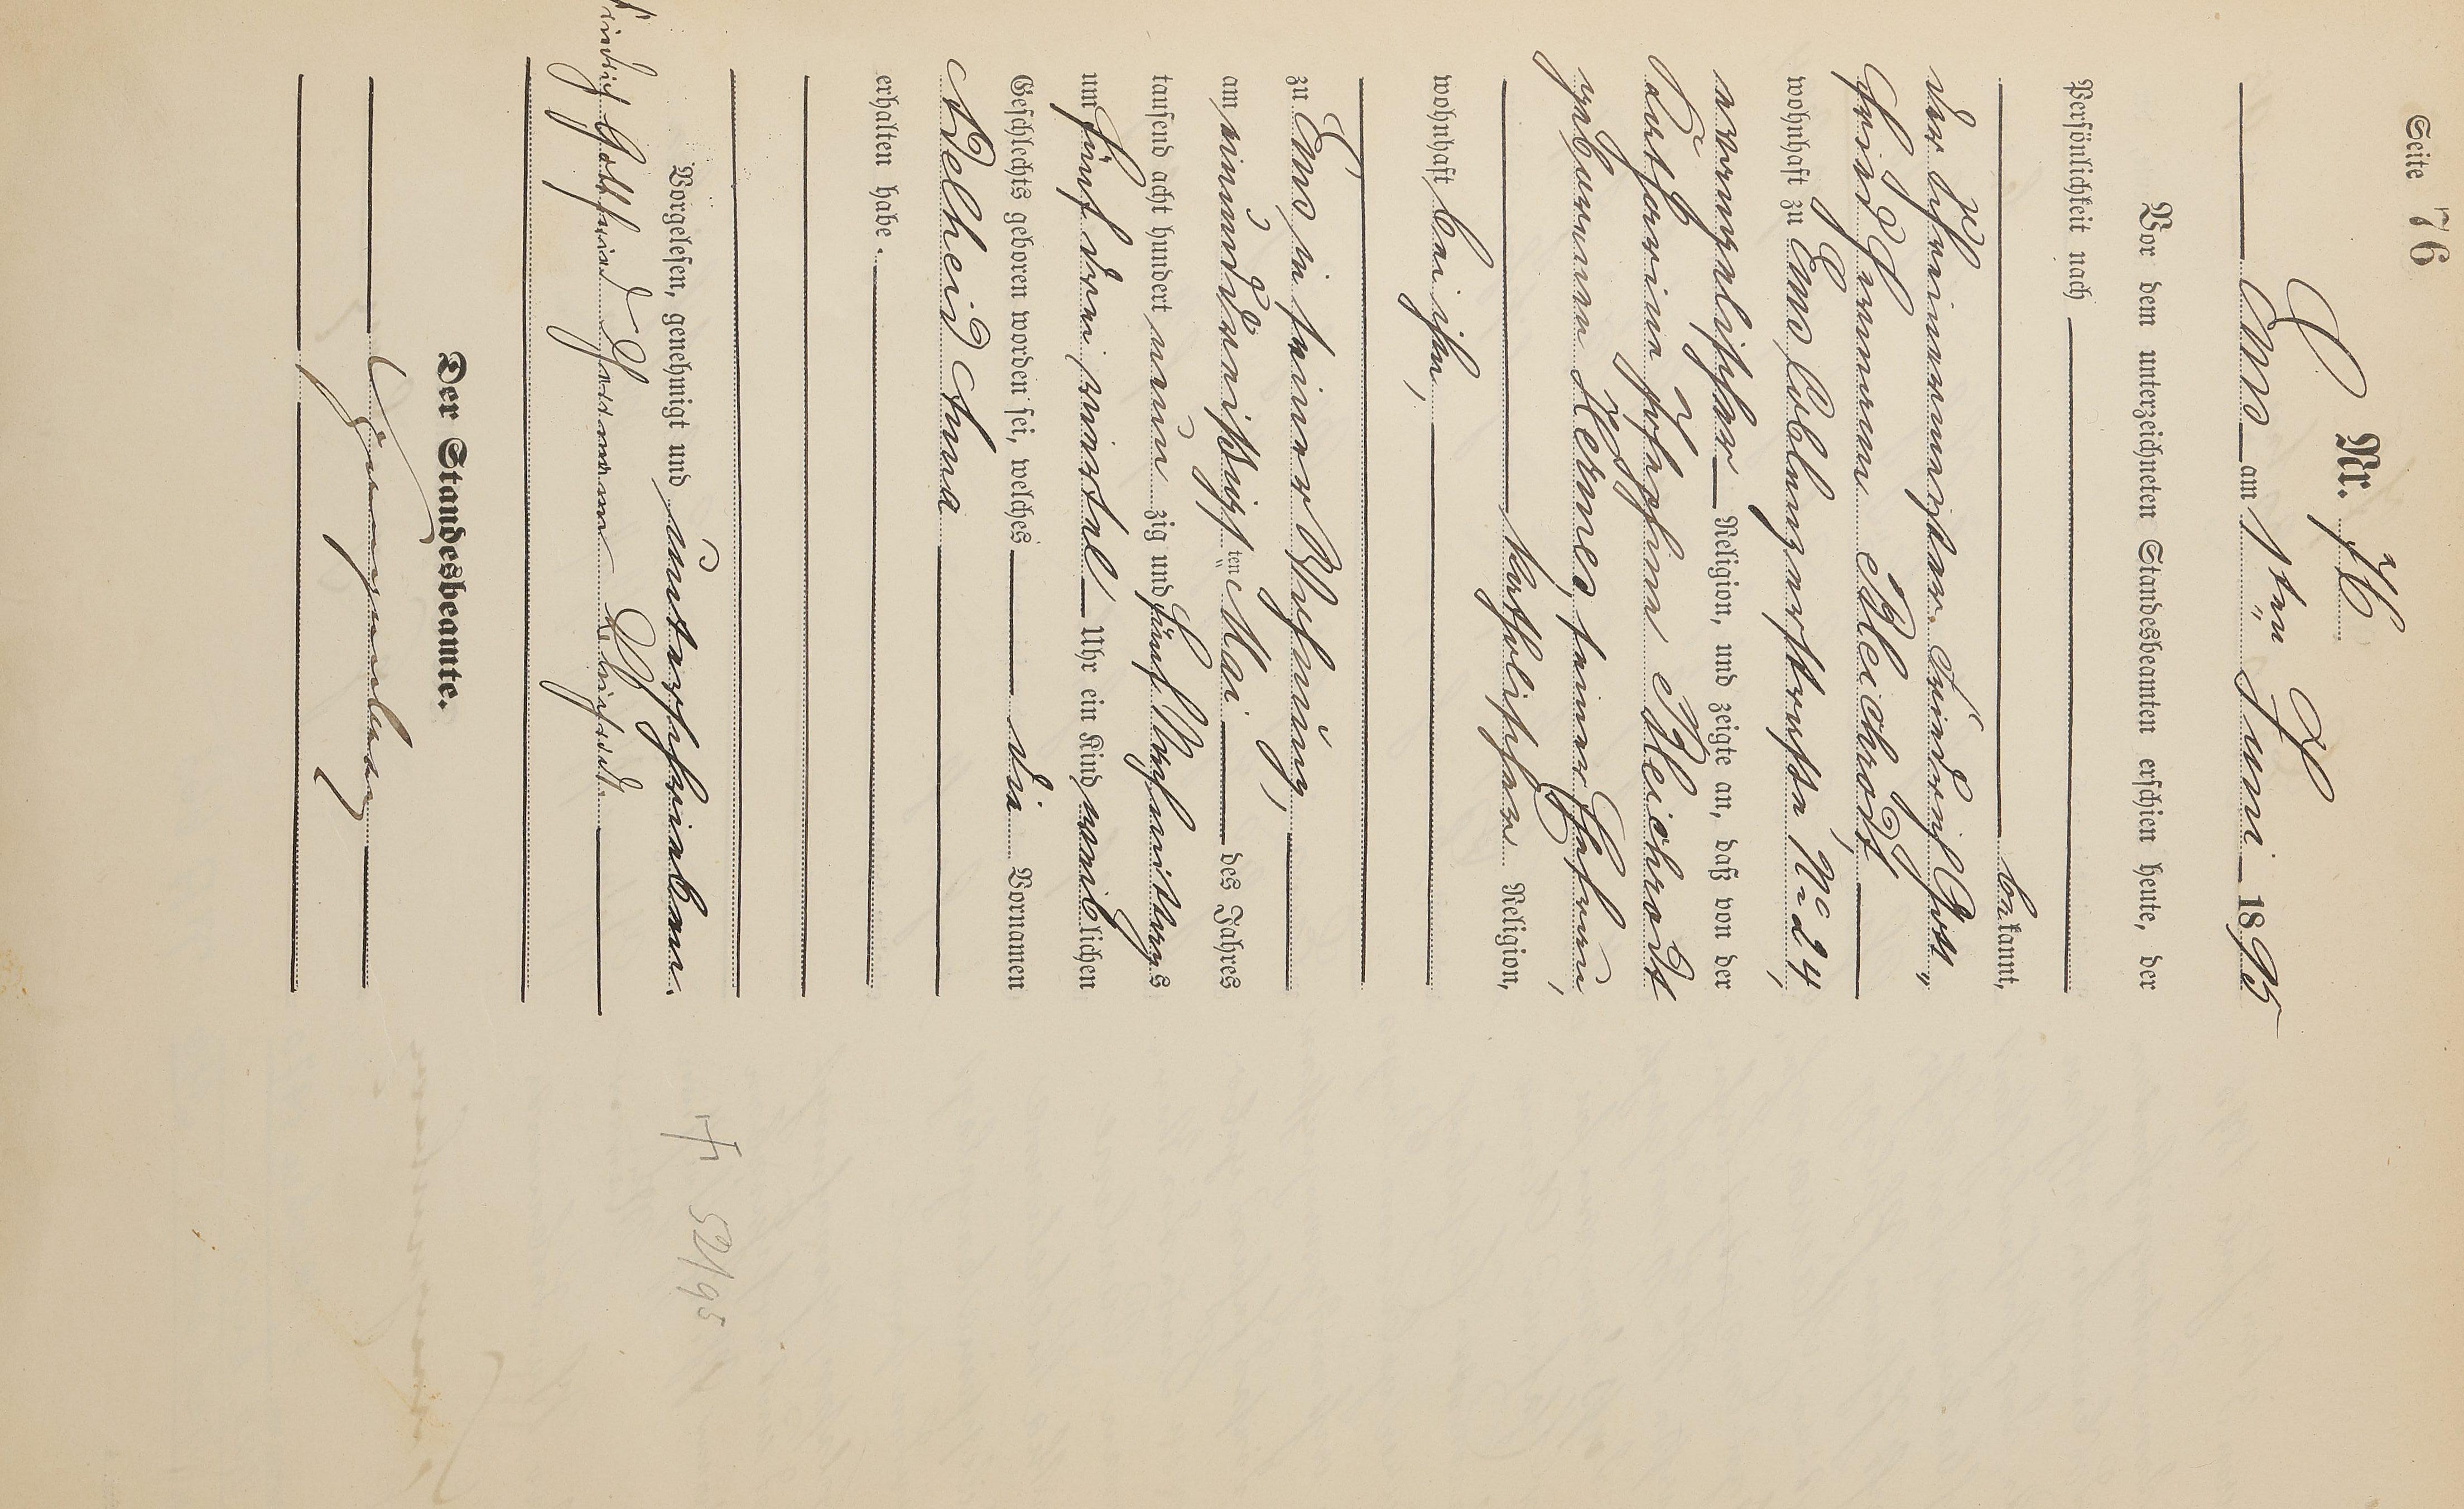 Seite 76
C
Nr. 76
Ems am 1ten Juni 1895
Vor dem unterzeichneten Standesbeamten erschien heute, der
Persönlichkeit nach
bekannt,
der Schreinermeister Friedrich Gott„
fried Hermann Bleichrodt
wohnhaft zu Ems, Coblenzerstraße No 24,
evangelischer Religion, und zeigte an, daß von der
Katharina Josephine Bleichrodt
geborenen Hermes, seiner Ehefrau,
katholischer Religion,
wohnhaft bei ihm,
zu Ems in seiner Wohnung,
am einunddreißigsten Mai des Jahres
tausend acht hundert neun zig und fünf Nachmittags
um fünf drei viertel Uhr ein Kind weiblichen
Geschlechts geboren worden sei, welches die Vornamen
Adelheid Anna
erhalten habe.
Vorgelesen, genehmigt und unterschrieben.
Friedrich Gottfried Hermann Bleichrodt.
Der Standesbeamte.
† 52/95